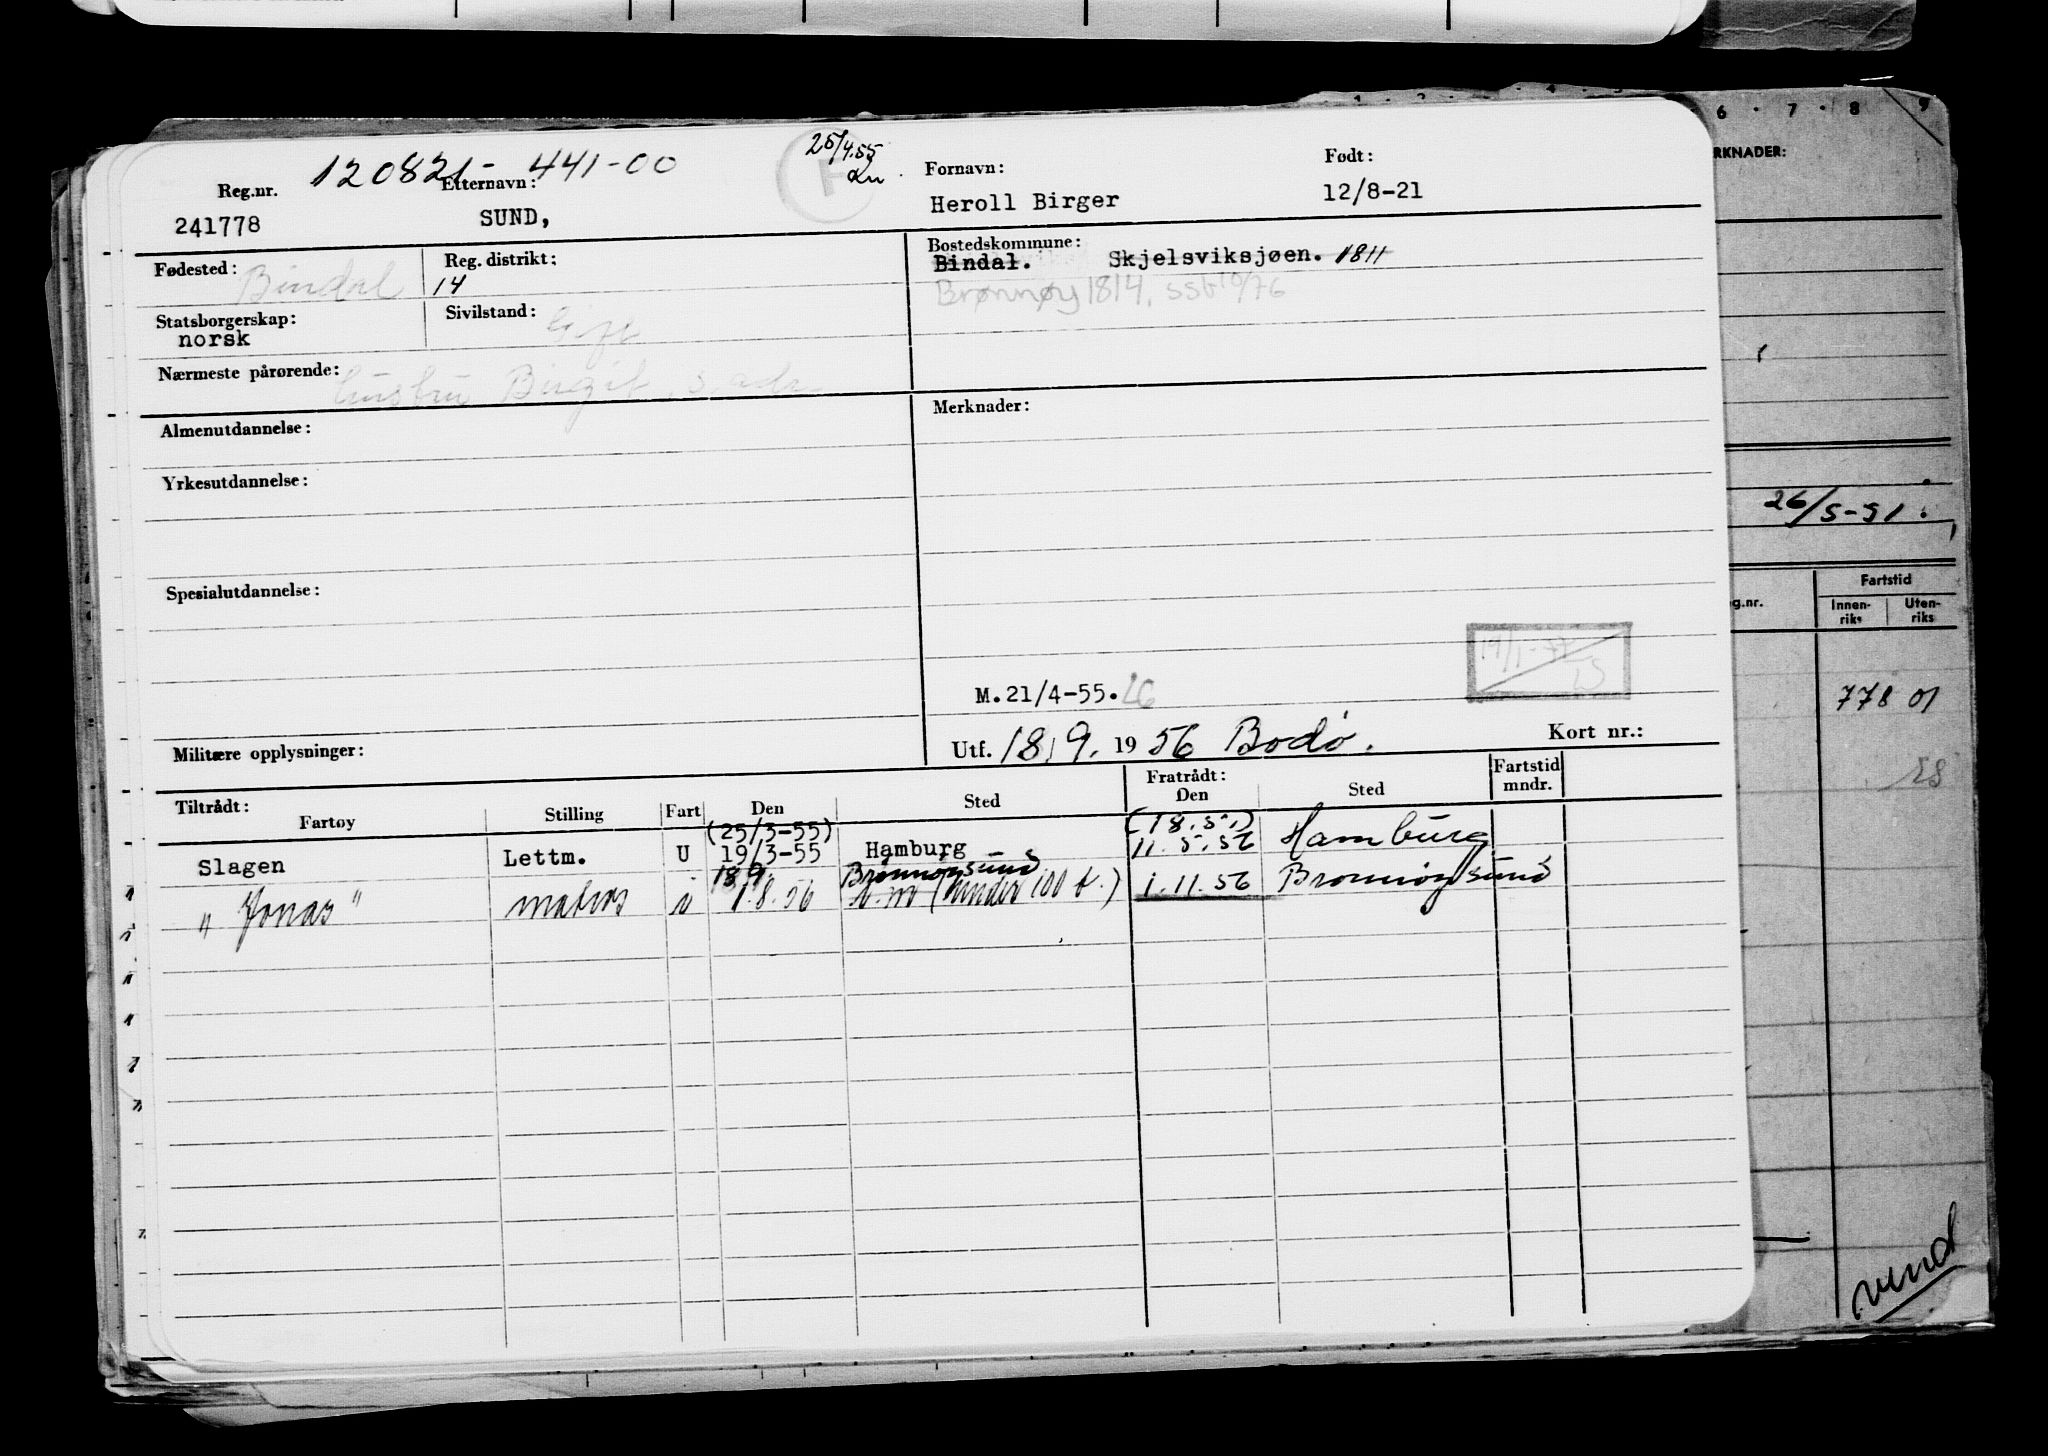 120821-441-00
25/4.55
F
Reg.nr. Etternavn: Fornavn: Født:
241778 SUND, Heroll Birger 12/8-21
Fødested: Bindal Reg. distrikt: 14 Bostedskommune: Bindal. Skjelsviksjøen. 1811
Brønnøy 1814. SSB 10/76
Statsborgerskap: norsk Sivilstand: Gift
Nærmeste pårørende: hustru Birgit, s. adr.
Almenutdannelse: Merknader:
Yrkesutdannelse:
Spesialutdannelse:
19/1-77
M.21/4-55.
Militære opplysninger: Utf. 18/9. 1956 Bodø. Kort nr.:
Tiltrådt: Fratrådt: Fartstid
Fartøy Stilling Fart Den Sted Den Sted mndr.
(25/3-55) (18.5.)
Slagen Lettm. U 19/3-55 Hamburg 11.5.56 Hamburg
18.9. Brønnøysund
"Jonas" matros i 1.8.56 (under 100 t.) 1.11.56 Brønnøysund
6 7 8 9
RKNADER:
26/5-51.
g.nr. Fartstid
Innen-riks Uten-riks
778 01